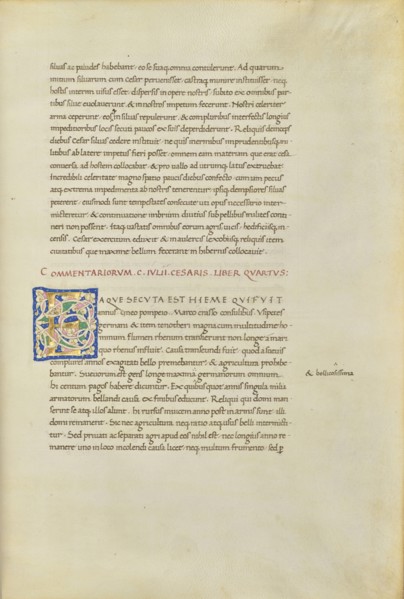 siluas ac paludes habebant. eo se suaq; omnia contulerunt. Ad quarum
initium siluarum cum Cesar peruenisset. castraq; munire instituisset. neq;
hostis interim uisus esset. dispersis in opere nostris. subito ex omnibus par
tibus silue euolauerunt. & in nostros impetum fecerunt. Nostri celeriter
arma ceperunt. eosq; in siluas repulerunt. & compluribus interfectis longius
impeditioribus locis secuti paucos ex suis deperdiderunt. Reliquis deinceps
diebus Cesar siluas cedere instituit. ne quis inermibus imprudentibusq; mi
litibus ab latere impetus fieri posset. omnem eam materiam que erat cesa
conuersa ad hostem collocabat. & pro uallo ad utrumq; latus extruebat.
Incredibili celeritate magno spatio paucis diebus confecto. cum iam pecus
atq; extrema impedimenta ab nostris tenerentur. ipsiq; densiores siluas
peterent. eiusmodi sunt tempestates consecute uti opus necessario inter
mitteretur. & continuatione imbrium diutius sub pellibus milites conti
neri non possent. Itaq; uastatis omnibus eorum agris uicis. hedificiisq; in
censis. Cesar exercitum eduxit & in aulercis lexobiisq; reliquis item
ciuitatibus que maxime bellum fecerant in hibernis collocauit.
COMMENTARIORVM. C. IVLII. CESARIS. LIBER QVARTVS:
EAQVE SECVTA EST HIEME QVI FVIT
annus Gneo pompeio. Marco crasso consulibus. Vsipetes
germani & item tenotheri magna cum multitudine ho
minum flumen rhenum transierunt non longe a mari
quo rhenus influit. Causa transeundi fuit. quod a sueuis
complures annos exagitati bello premebantur. & agricultura prohibe
bantur. Sueuorum est gens longe maxima germanorum omnium.
& bellicosissima
hi centum pagos habere dicuntur. Ex quibus quotannis singula milia
armatorum bellandi causa ex finibus educunt. Reliqui qui domi man
serint se atq; illos alunt. hi rursus inuicem anno post in armis sunt. illi
domi remanent. Sic nec agricultura. nec ratio atq; usus belli intermitti
tur. Sed priuati ac separati agri apud eos nihil est. nec longius anno re
manere uno in loco incolendi causa licet. neq; multum frumento. sed p